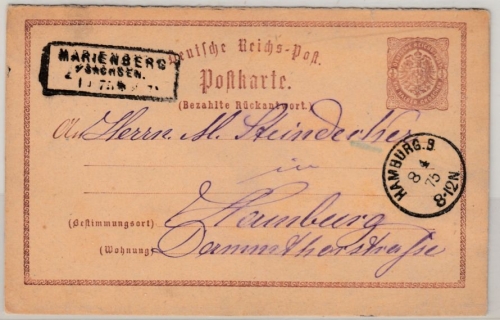 MARIENBERG
i/SACHSEN.
Deutsche Reichs-Post.
Postkarte.
(Bezahlte Rückantwort.)
An Herrn M. Steindecker
in
(Bestimmungsort) Hamburg
(Wohnung) Dammthorstraße
HAMBURG.9.
8 4
75
8-12N